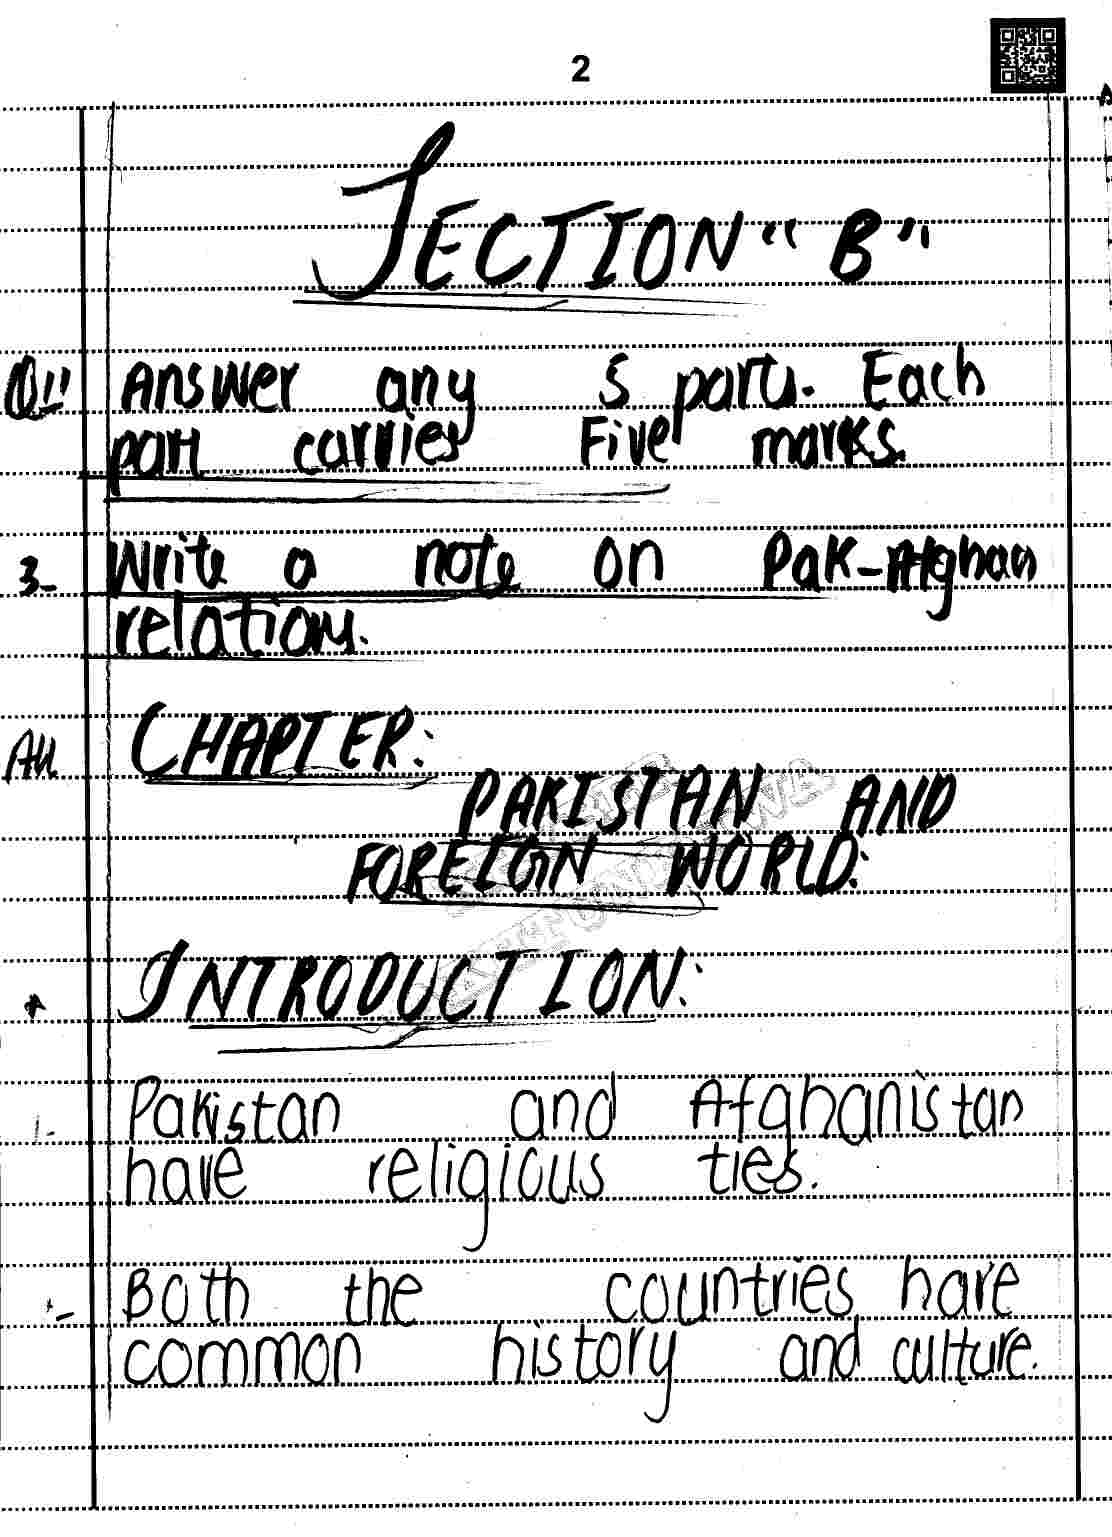 2
SECTION "B"
Q11 Answer any 5 parts. Each
part carries Five marks.
3- Write a note on Pak-Afghan
relations.
Ans CHAPTER:
PAKISTAN AND
FOREIGN WORLD:
INTRODUCTION:
1- Pakistan and Afghanistan
have religious ties.
Both the countries have
common history and culture.